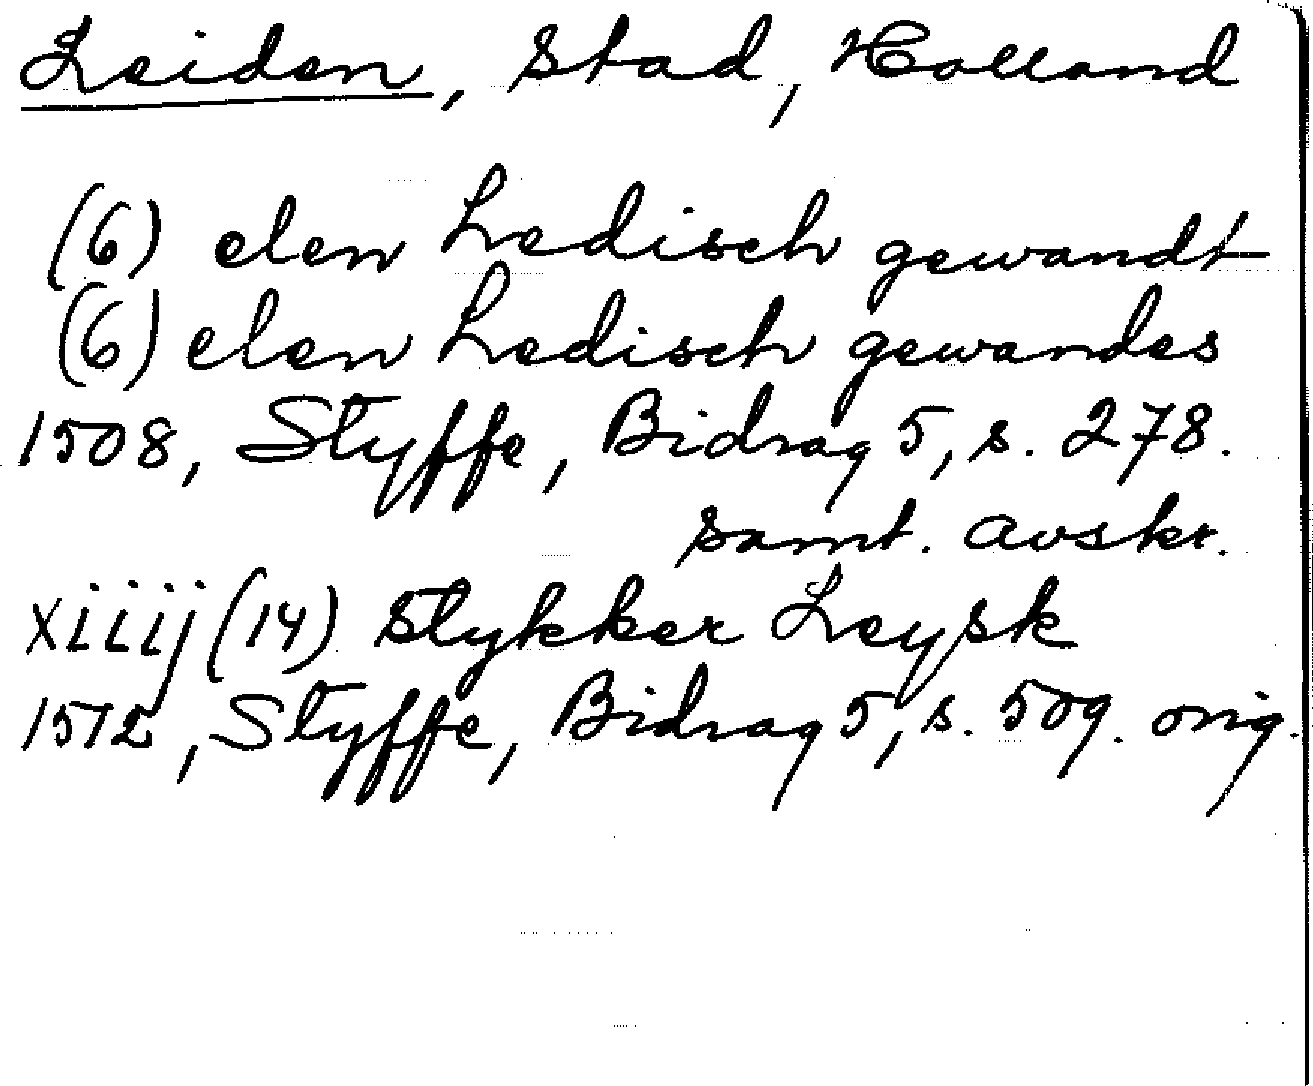 Leiden, stad, Holland
(6) elen Ledisch gewandt
(6) elen Ledisch gewandes
1508, Styffe, Bidrag 5, s. 278.
samt. avskr.
xiiij (14) stykker Leysk
1512, Styffe, Bidrag 5, s. 509. orig.